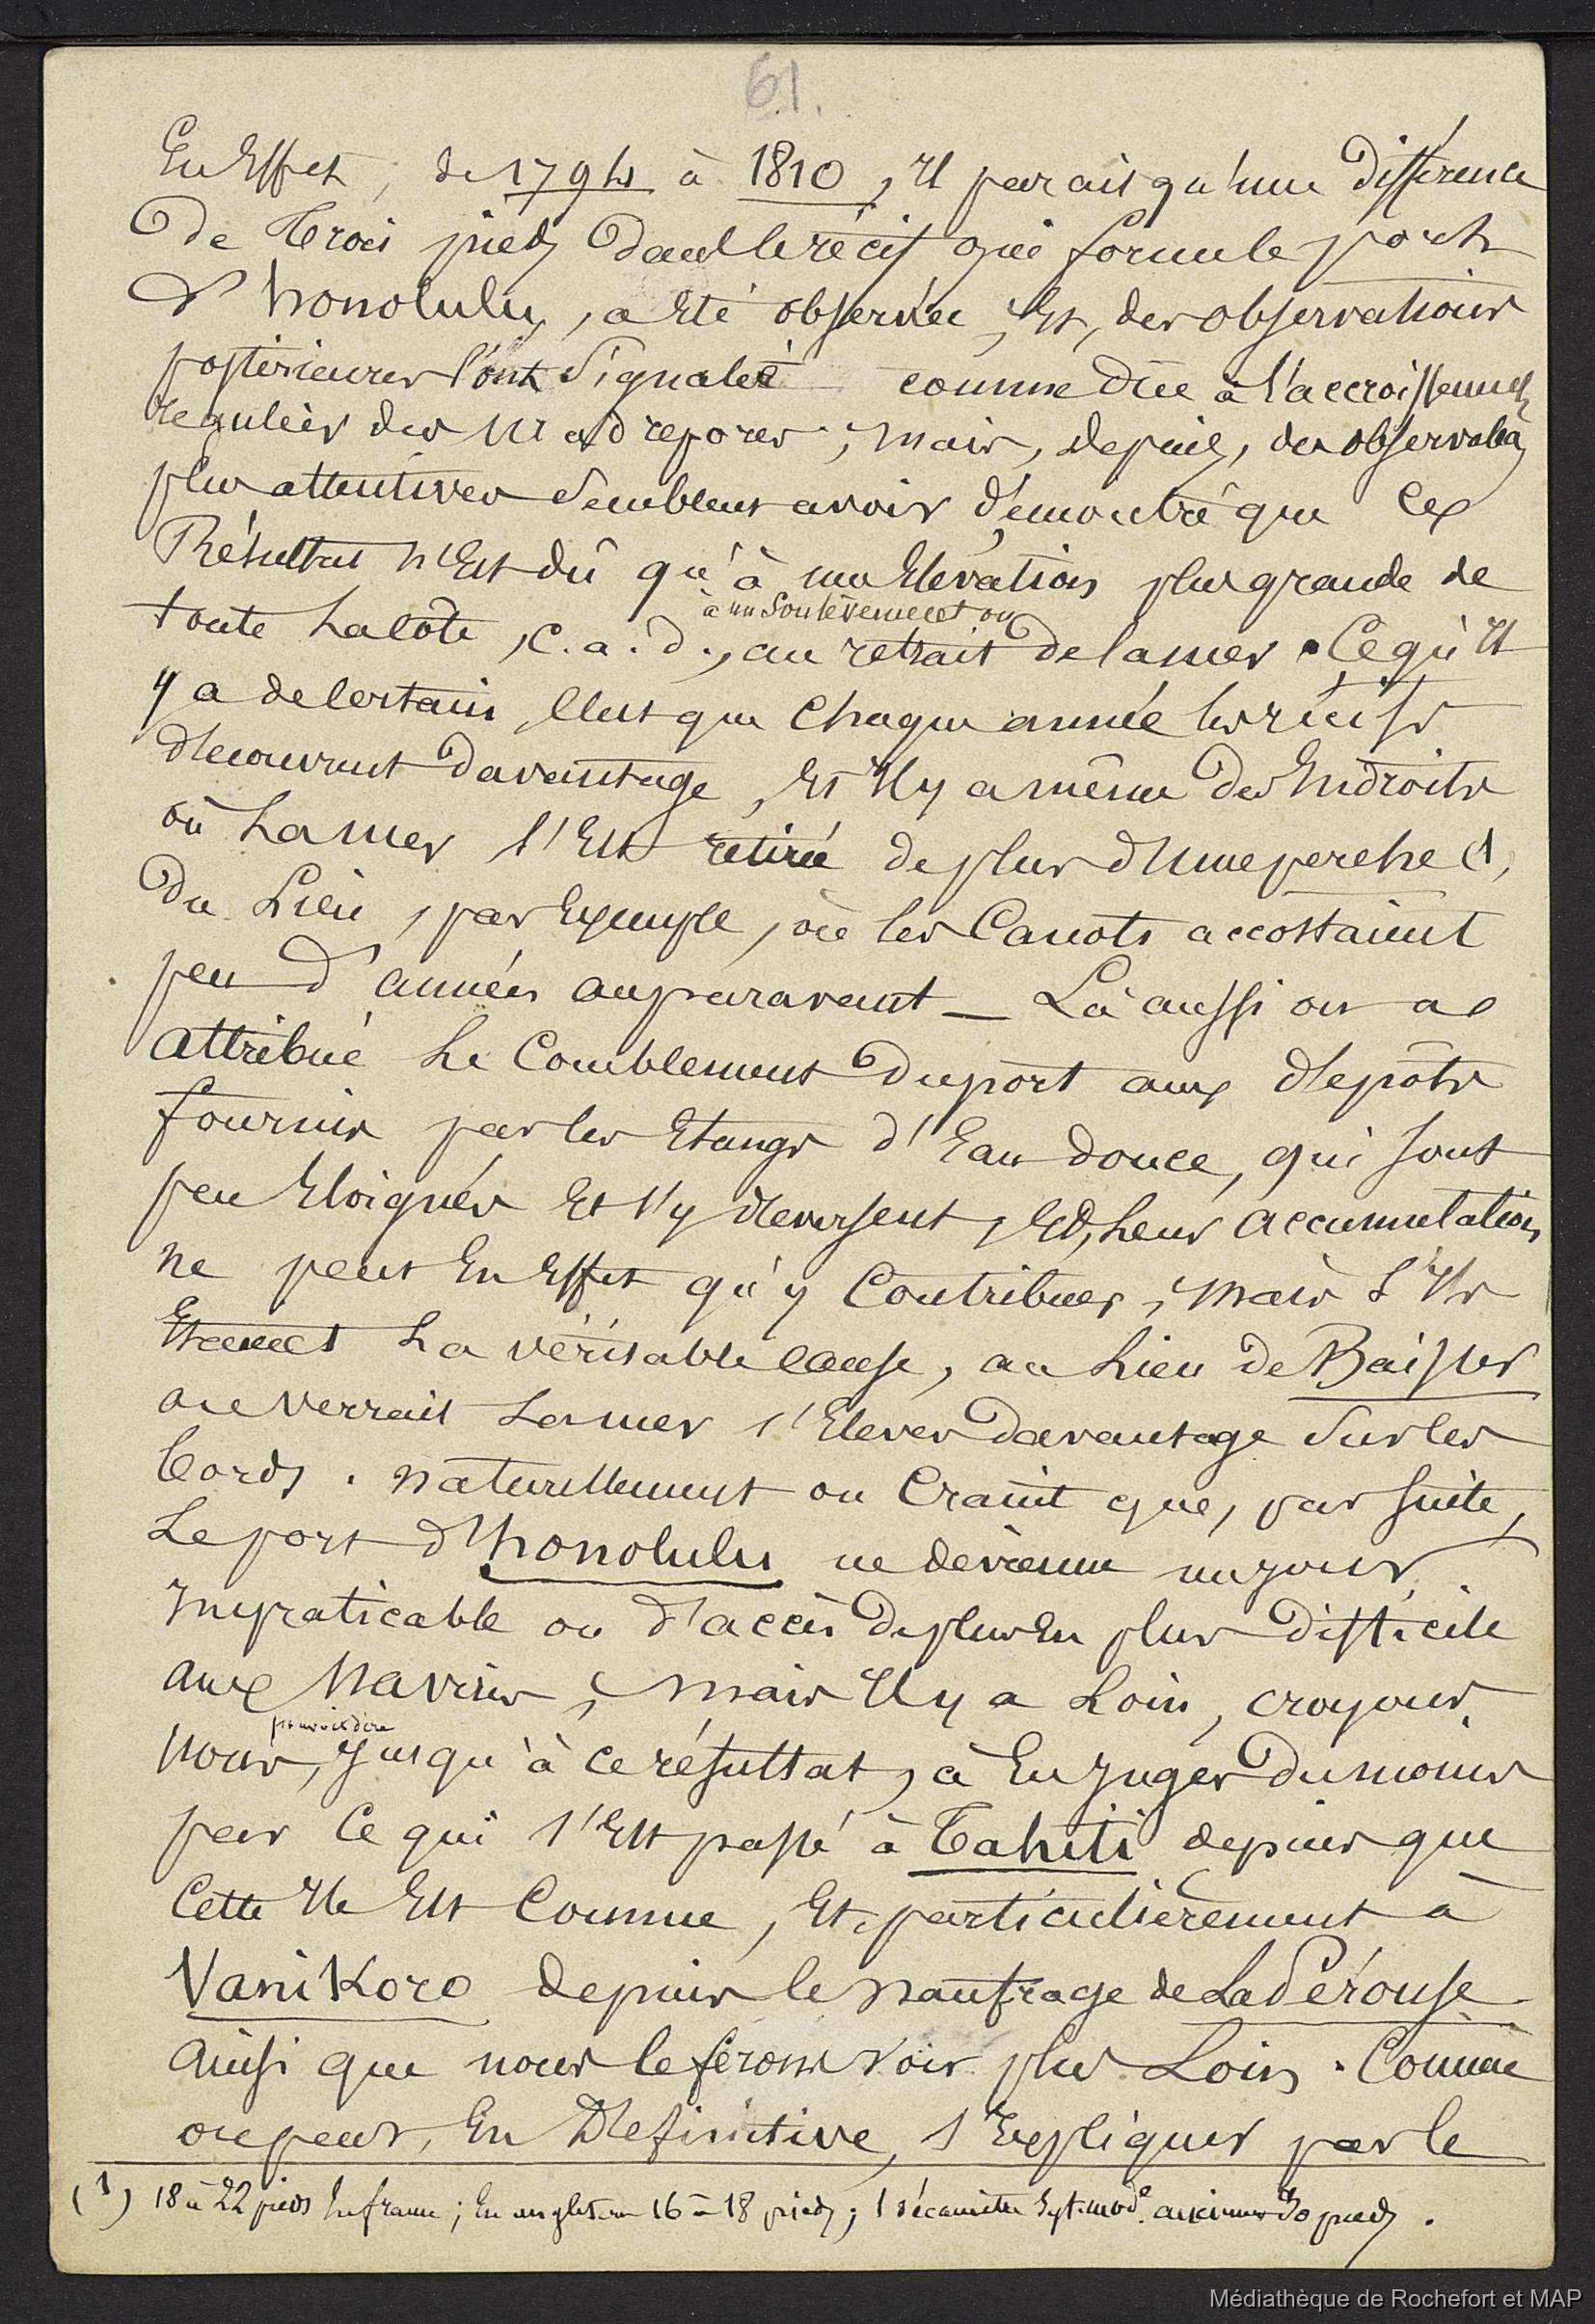 61.
En Effet, de 1794 à 1810, Il parait qu'une Différence
De Trois pieds Dans le récif qui forme le port
D'honolulu, a Eté observée, Et, des observations
postérieures l'ont Signalée comme dûe à l'accroissement
régulier des Madrepores ; mais, depuis, des observations
plus attentives Semblent avoir démontré que Ce
Résultat n'Est dû qu'à une Elévation plus grande de
à un Soulèvement ou
toute La Côte, c. a. d., au retrait de la mer. Ce qu'Il
y a de Certain, C'est que Chaque année les récifs
découvrent Davantage, Et Il y a même Des Endroits
où La mer s'Est retirée de plus d'Une perche (1)
Du Lieu, par Exemple, où les Canots accostaient
peu D'années auparavant — Là aussi on a
attribué Le Comblement Du port aux dépôts
fournis par les Etangs d'Eau douce, qui sont
peu Eloignés Et s'y déversent, Et, Leur accumulation
ne peut En Effet qu'y Contribuer, mais S'Ils
Etaient La véritable Cause, au Lieu de Baisser
on verrait La mer s'Elever Davantage Sur les
bords. naturellement on Craint que, par suite,
Le port d'honolulu ne devienne un jour
Impraticable ou d'accès De plus En plus Difficile
aux Navires ; mais Il y a Loin, croyons
pouvoir dire
Nous, Jusqu'à ce résultat, à En Juger Du moins
par Ce qui s'Est passé à Tahiti depuis que
Cette Ile Est Connue, Et particulièrement à
Vanikoro depuis le Naufrage de La Pérouse
ainsi que nous le ferons voir plus Loin. Comme
on peut, En Définitive, s'Expliquer par le
(1) 18 à 22 pieds En france ; En angleterre 16 à 18 pieds ; 1 décamètre Syst. mod.e anciennes 30 pieds.
Médiathèque de Rochefort et MAP